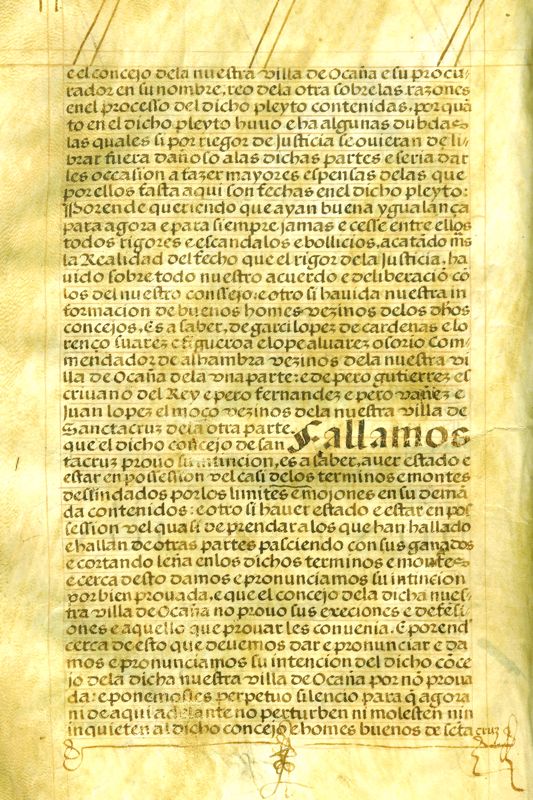 e el concejo dela nuestra villa de Ocaña e su procu-
rador en su nombre, reo dela otra sobre las razones
enel processo del dicho pleyto contenidas, por quã
to en el dicho pleyto huuo e ha algunas dubdas
las quales si por riegor de Justicia se ouieran de li-
brar fuera dañoso alas dichas partes e seria dar
les occasion a fazer mayores espensas delas que
por ellos fasta aqui son fechas enel dicho pleyto:
Porende queriendo que ayan buena ygualança
para agora e para siempre jamas e cesse entre ellos
todos rigores e escandalos e bollicios, acatãdo mªs
la Realidad del fecho que el rigor dela Justicia, ha
uido sobre todo nuestro acuerdo e deliberaciõ cõ
los del nuestro conssejo: e otro si hauida nuestra in
formacion de buenos homes vezinos delos dhos
concejos, Es a saber, de garci lopez de cardenas e lo
renço suarez figueroa e lope aluarez osorio com-
mendador de alhambra vezinos dela nuestra vi
lla de Ocaña dela vna parte: e de pero gutierrez es
criuano del Rey e pero fernandez e pero vañez e
Juan lopez el moço vezinos dela nuestra villa de
Sanctacruz dela otra parte. Fallamos
que el dicho concejo de san
tacruz prouo su intincion, es a saber, auer estado e
estar en possession vel casi delos terminos e montes
deslindados por los limites e mojones en su demã
da contenidos: e otro si hauer estado e estar en pos
session vel quasi de prendar a los que han hallado
e hallan de otras partes pasciendo con sus ganados
e cortando leña enlos dichos terminos e montes
e cerca desto damos e pronunciamos su intincion
por bien prouada, e que el concejo dela dicha nues-
tra villa de Ocaña no prouo sus execiones e defẽsi
ones e aquello que prouar les conuenia. E porend'
cerca de esto que deuemos dar e pronunciar e da
mos e pronunciamos su intencion del dicho cõce
jo dela dicha nuestra villa de Ocaña por nõ proua
da: e ponemosles perpetuo silencio para q̃ agora
ni de aqui adelante no perturben ni molesten nin
inquieten al dicho concejo e homes buenos de sctã cruz